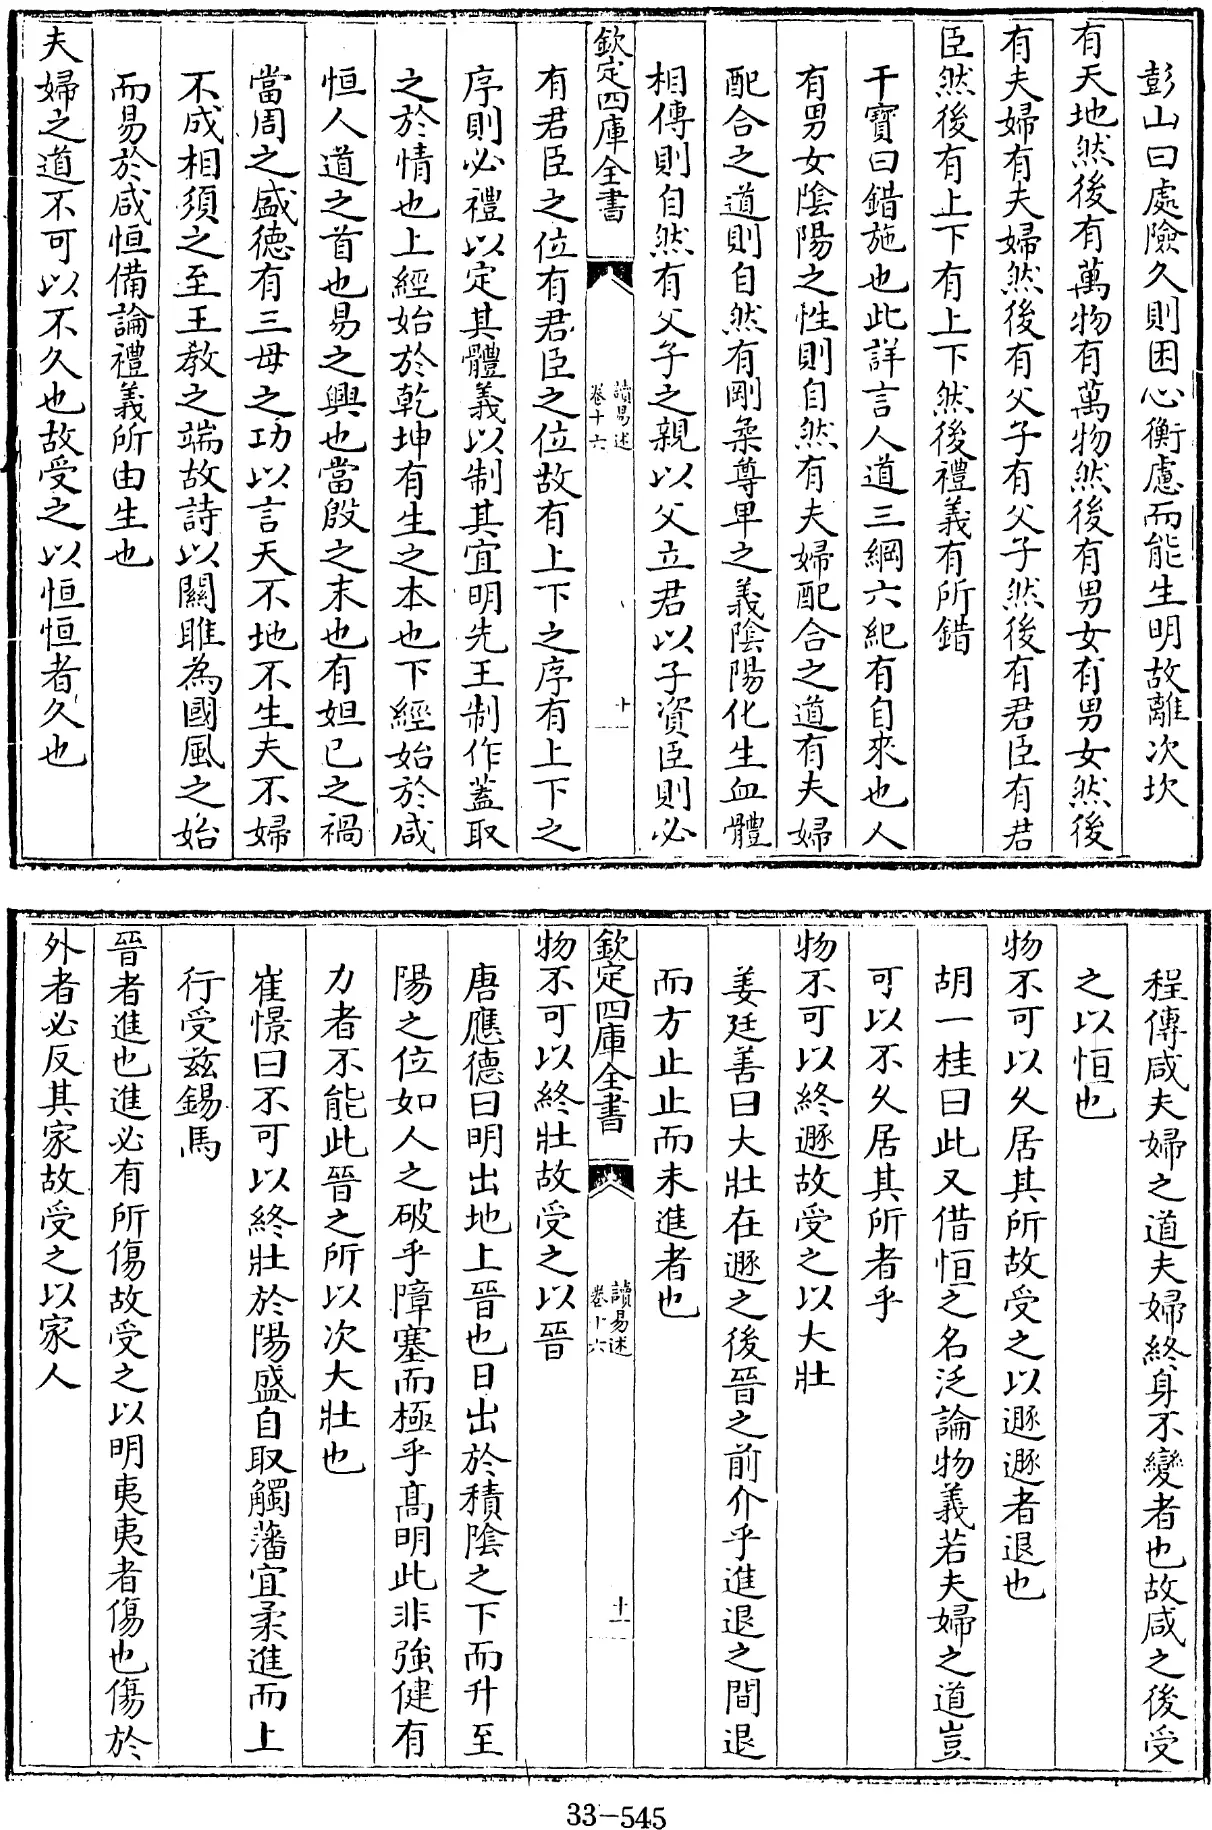 彭山曰處險久則困心衡慮而能生明故離次坎
有天地然後有萬物有萬物然後有男女有男女然後
有夫婦有夫婦然後有父子有父子然後有君臣有君
臣然後有上下有上下然後禮義有所錯
干寶曰錯施也此詳言人道三綱六紀有自來也人
有男女陰陽之性則自然有夫婦配合之道有夫婦
配合之道則自然有剛柔尊卑之義陰陽化生血體
相傳則自然有父子之親以父立君以子資臣則必
欽定四庫全書
讀易述
卷十六
十
有君臣之位有君臣之位故有上下之序有上下之
序則必禮以定其體義以制其宜明先王制作蓋取
之於情也上經始於乾坤有生之本也下經始於咸
恒人道之首也易之興也當殷之末也有妲已之禍
當周之盛德有三母之功以言天不地不生夫不婦
不成相須之至王教之端故詩以關雎為國風之始
而易於咸恒備論禮義所由生也
夫婦之道不可以不久也故受之以恒恒者久也
程傳咸夫婦之道夫婦終身不變者也故咸之後受
之以恒也
物不可以久居其所故受之以遯遯者退也
胡一桂曰此又借恒之名泛論物義若夫婦之道豈
可以不久居其所者乎
物不可以終遯故受之以大壯
姜廷善曰大壯在遯之後晉之前介乎進退之間退
而方止止而未進者也
欽定四庫全書
讀易述
卷十六
十一
物不可以終壯故受之以晉
唐應德曰明出地上晉也日出於積陰之下而升至
陽之位如人之破乎障塞而極乎髙明此非強健有
力者不能此晉之所以次大壯也
崔憬曰不可以終壯於陽盛自取觸藩宜柔進而上
行受兹錫馬
晉者進也進必有所傷故受之以明夷夷者傷也傷於
外者必反其家故受之以家人
33-545